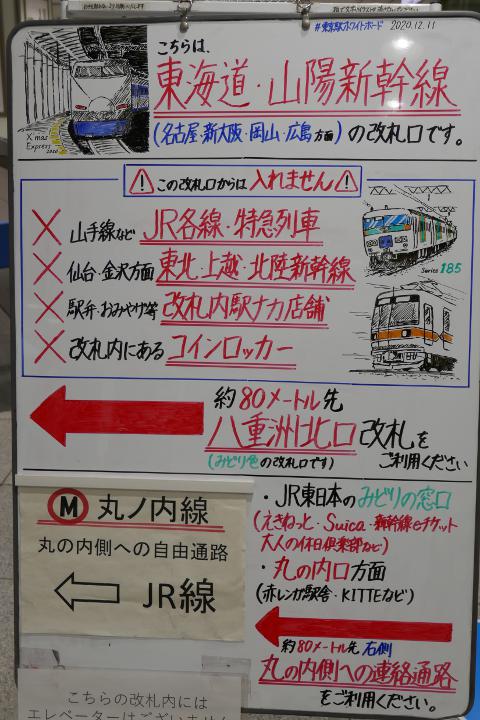 #東京駅ホワイトボード 2020.12.11
こちらは、
東海道・山陽新幹線
(名古屋・新大阪・岡山・広島方面)の改札口です。
X'mas
Express
2020
⚠この改札口からは入れません⚠
×山手線など JR各線・特急列車
×仙台・金沢方面 東北・上越・北陸新幹線
×駅弁・おみやげ等 改札内駅ナカ店舗
×改札内にある コインロッカー
Series 185
約80メートル先
八重洲北口改札を
(みどり色の改札口です) ご利用ください
M 丸ノ内線
丸の内側への自由通路
JR線
・JR東日本のみどりの窓口
(えきねっと・Suica・新幹線eチケット
大人の休日倶楽部など)
・丸の内口方面
(赤レンガ駅舎・KITTEなど)
約80メートル先 右側
丸の内側への連絡通路
をご利用ください。
こちらの改札内には
エレベーターはございません